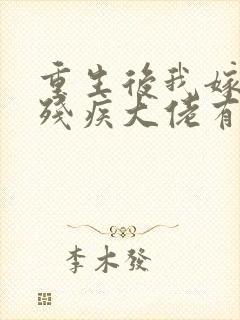 重生後我嫁
殘疾大佬有
李木發